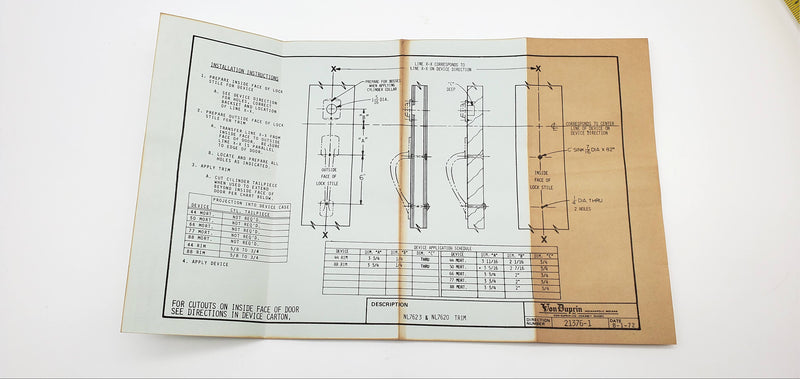 INSTALLATION INSTRUCTIONS
1. PREPARE INSIDE FACE OF LOCK
STILE FOR DEVICE
A. SEE DEVICE DIRECTION
FOR HOLES, CORRECT
BACKSET AND LOCATION
OF LINE X-X.
2. PREPARE OUTSIDE FACE OF LOCK
STILE FOR TRIM
A. TRANSFER LINE X-X FROM
INSIDE FACE TO OUTSIDE
FACE OF DOOR. BE SURE
LINE X-X IS PARALLEL
TO EDGE OF DOOR.
B. LOCATE AND PREPARE ALL
HOLES AS INDICATED.
3. APPLY TRIM
A. CUT CYLINDER TAILPIECE
WHEN USED TO EXTEND
BEYOND INSIDE FACE OF
DOOR PER CHART BELOW.
PROJECTION INTO DEVICE CASE
DEVICE CYL. TAILPIECE
44 MORT. NOT REQ'D.
50 MORT. NOT REQ'D.
66 MORT. NOT REQ'D.
77 MORT. NOT REQ'D.
88 MORT. NOT REQ'D.
44 RIM 5/8 TO 3/4
88 RIM 5/8 TO 3/4
4. APPLY DEVICE
FOR CUTOUTS ON INSIDE FACE OF DOOR
SEE DIRECTIONS IN DEVICE CARTON.
X
LINE X-X CORRESPONDS TO
LINE X-X ON DEVICE DIRECTION
X
PREPARE FOR
WHEN APPLYING
CYLINDER COLLAR
DIA.
"B"
"A"
6"
OUTSIDE
FACE OF
LOCK STILE
X
"C"
DEEP
CORRESPONDS TO CENTER
LINE OF DEVICE ON
DEVICE DIRECTION
DIA X 82°
INSIDE
FACE OF
LOCK STILE
DIA. THRU
2 HOLES
X
DEVICE APPLICATION SCHEDULE
DEVICE DIM. "A" DIM. "B" DIM. "C" DEVICE DIM. "A" DIM. "B" DIM. "C"
44 RIM 3 3/4 1/4 THRU 44 MORT. 3 11/16 2 1/16 3/4
88 RIM 3 3/4 1/4 THRU 50 MORT. 3 5/16 2 7/16 3/4
66 MORT. 3 3/4 2" 3/4
77 MORT. 3 3/4 2" 3/4
88 MORT. 3 3/4 2" 3/4
DESCRIPTION
NL7623 & NL7620 TRIM
Von Duprin INDIANAPOLIS, INDIANA
DIRECTION
NUMBER 21376-1
DATE
8-1-72